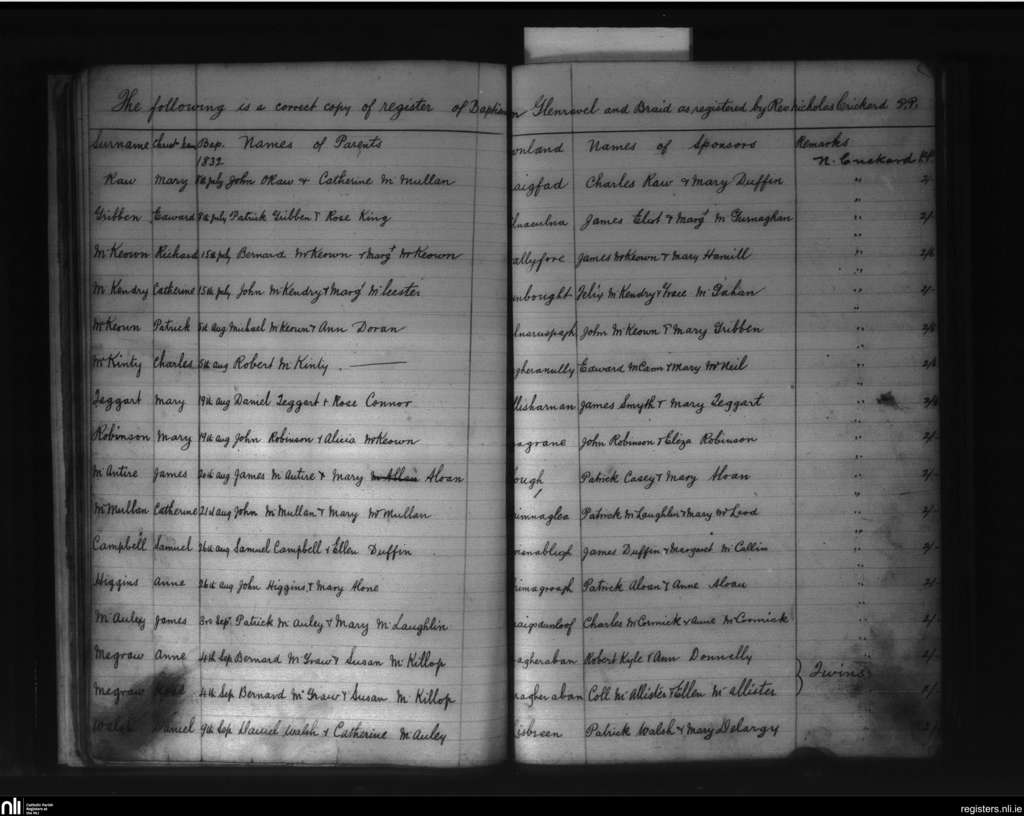 The following is a correct copy of register of Baptism Glenravel and Braid as registered by Rev Nicholas Crickard P.P.
Surname Christ Name Bap. Names of Parents wnland Names of Sponsors Remarks
1832 N. Crickard P.P.
Kaw Mary 8th July John OKaw & Catherine McMullan aigfad Charles Kaw & Mary Duffin " 2/-
Gribben Edward 8th July Patrick Gribben & Rose King lnaculna James Eliot & Margt " 2/-
McKeown Richard 15th July Bernard McKeown & Margt McKeown allyfore James McKeown & Mary Hamill " 2/6
McKendry Catherine 15th July John McKendry & Margt McLeester nbought Felix McKendry & Grace McGahan " 2/-
McKeown Patrick 5th Aug Michael McKeown & Ann Doran John McKeown & Mary Gribben " 2/6
McKinty Charles 5th Aug Robert McKinty — gheranully Edward McCann & Mary McNeil " 2/6
Teggart Mary 19th Aug Daniel Teggart & Rose Connor llisharnan James Smyth & Mary Teggart " 2/6
Robinson Mary 19th Aug John Robinson & Alicia McKeown agrane John Robinson & Eliza Robinson " 2/-
McAntire James 20th Aug James McAntire & Mary Aloan ough Patrick Casey & Mary Aloan " 2/-
McMullan Catherine 21st Aug John McMullan & Mary McMullan imnaglea Patrick McLaughlin & Mary McLeod " 2/-
Campbell Samuel 26th Aug Samuel Campbell & Ellen Duffin James Duffin & Margaret McCallin " 2/-
Higgins Anne 26th Aug John Higgins & Mary Alone Patrick Aloan & Anne Aloan " 2/-
McAuley James 3rd Sep. Patrick McAuley & Mary McLaughlin aigsdunloof Charles McCormick & Anne McCormick " 2/-
Megraw Anne 4th Sep Bernard McGraw & Susan McKillop agheraban Robert Kyle & Ann Donnelly 2/-
Twins
Megraw Rose 4th Sep Bernard McGraw & Susan McKillop nagheraban Coll McAllister & Ellen McAllister
Walsh Daniel 9th Sep Daniel Walsh & Catherine McAuley isbreen Patrick Walsh & Mary Delargy
nli Catholic Parish
Registers at
the NLI
registers.nli.ie